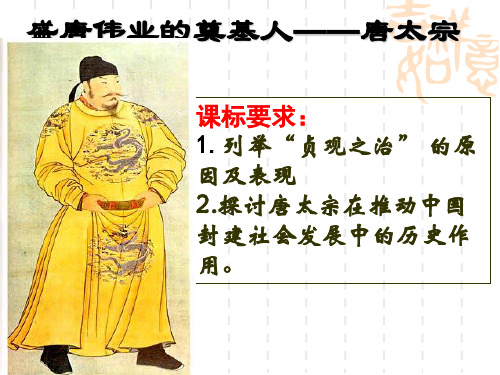 盛唐伟业的奠基人——唐太宗
课标要求：
1. 列举“贞观之治” 的原
因及表现
2.探讨唐太宗在推动中国
封建社会发展中的历史作
用。